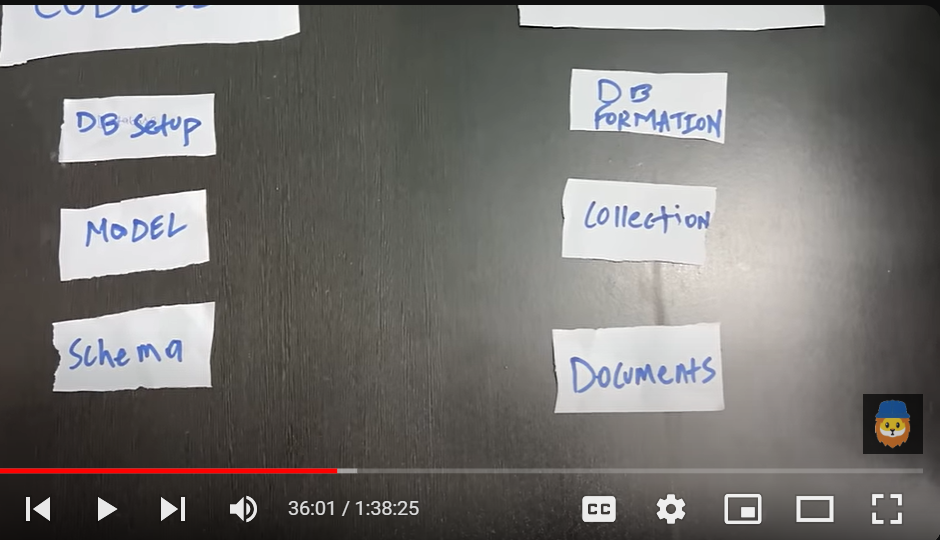 DB setup
MODEL
Schema
DB
FORMATION
Collection
Documents
36:01 / 1:38:25
CC